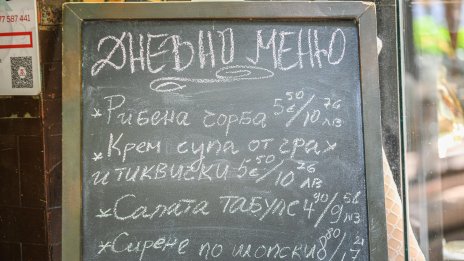 77 587 441
ДНЕВНО МЕНЮ
* Рибена чорба 5 50 € / 10 76 лв
* Крем супа от грах
и тиквички 5 50 € / 10 76 лв
* Салата табуле 4 90 € / 9 58 лв
* Сирене по шопски 8 80 / 17 21